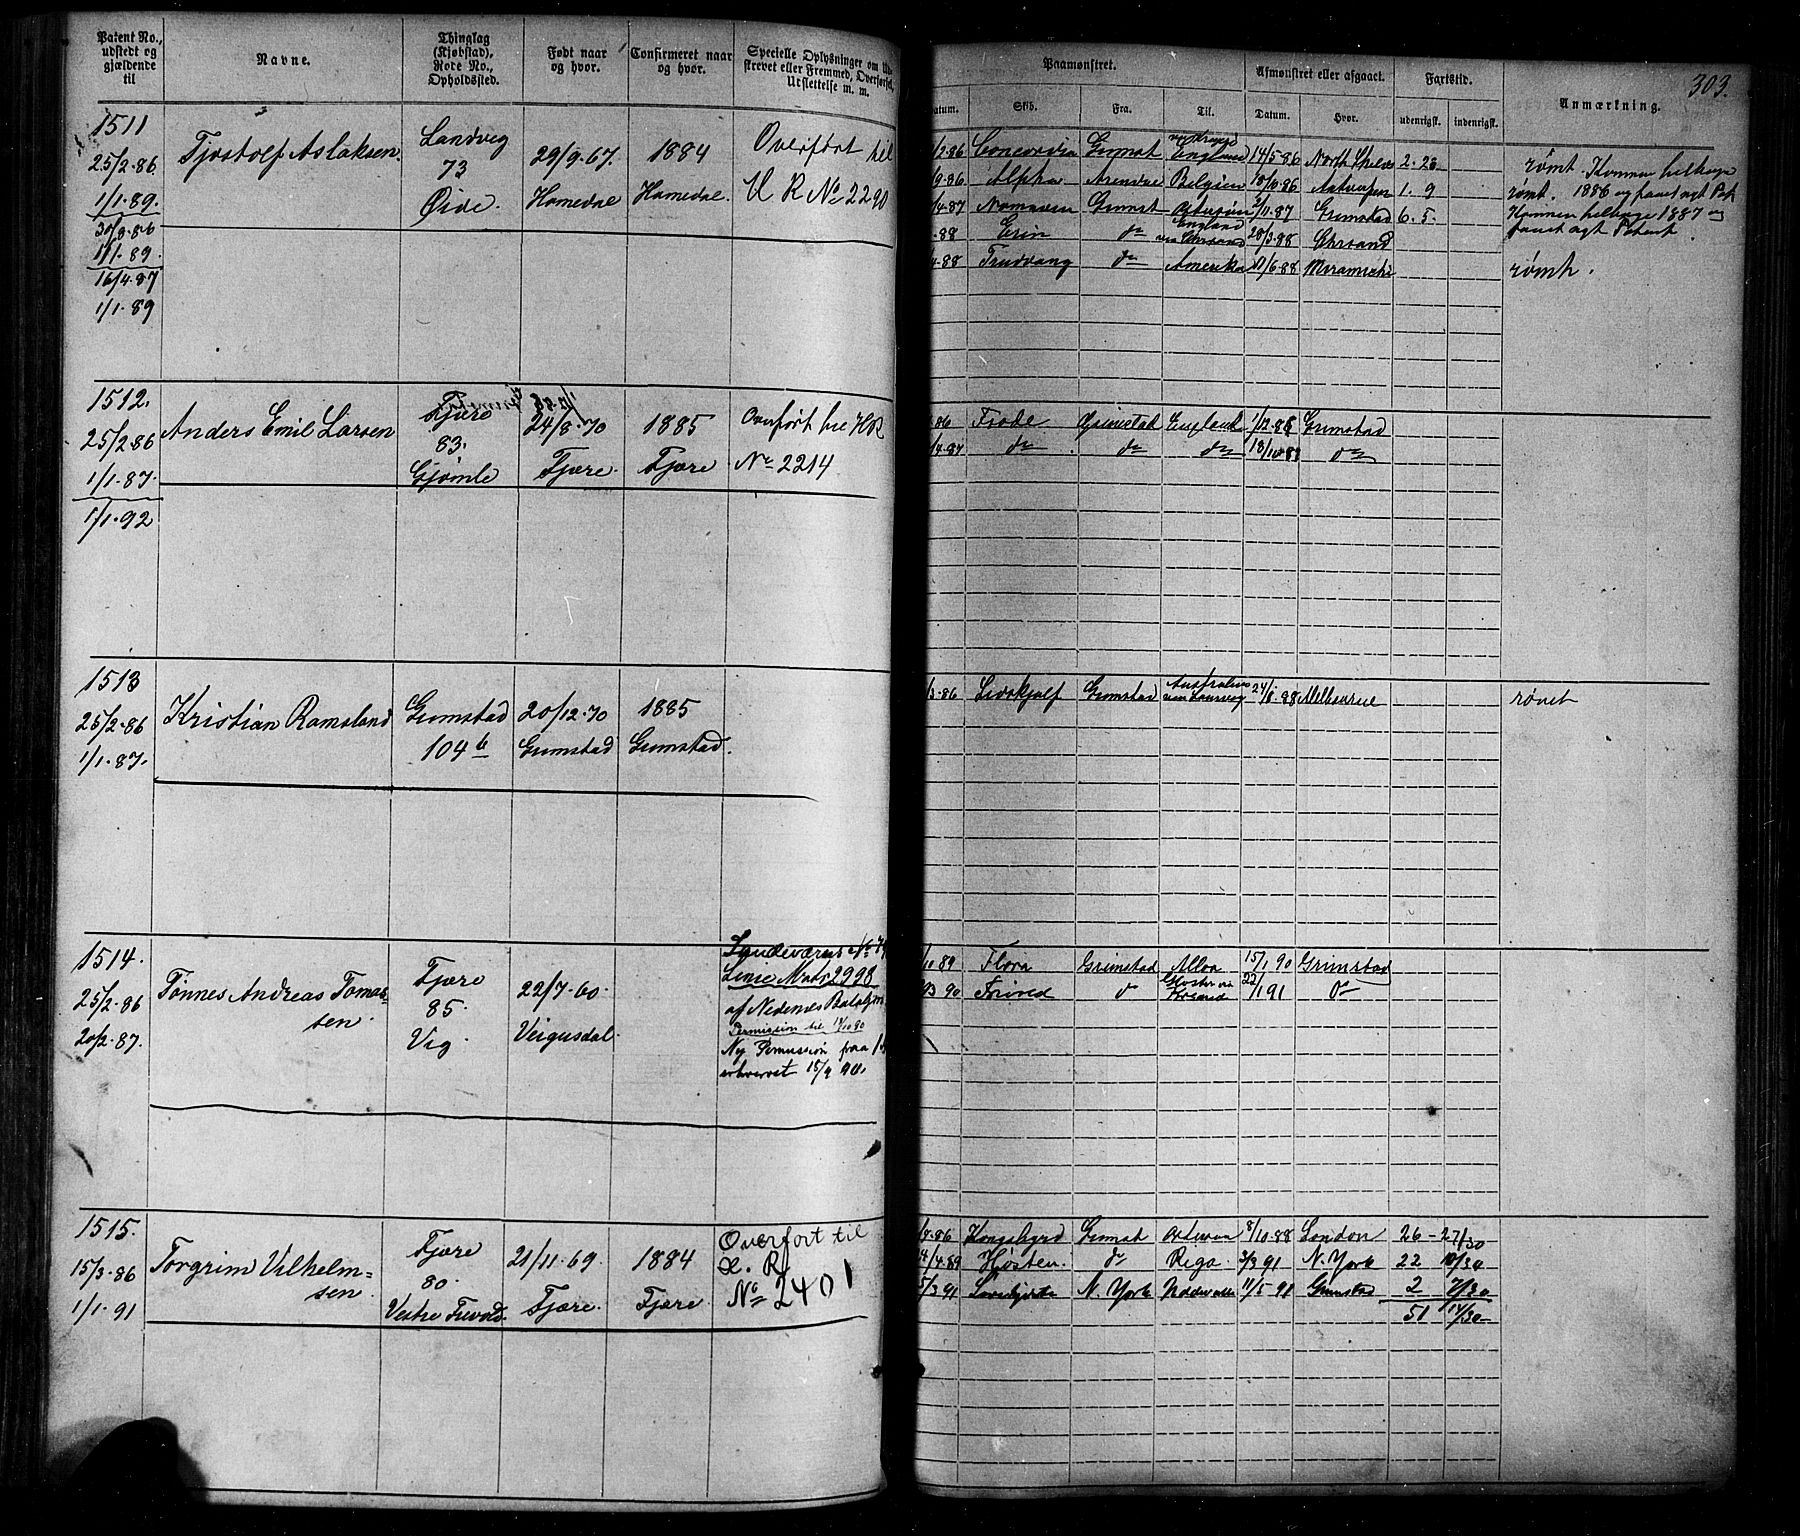 Patent No., udstedt og gjældende til
Navne.
Thinglag (Kjøbstad), Rode No., Opholdssted.
Født naar og hvor.
Confirmeret naar og hvor.
Specielle Oplysninger om
strevet eller Fremmed, Overførsel,
Udslettelse m. m.
Paamønstret.
Afmønstret eller afgaaet.
Fartstid.
Anmærkning.
303.
Datum.
Skib.
Fra.
Til.
Datum.
Hvor.
udenrigsk.
indenrigsk.
1511
25/2.86
1/1.89.
30/9.86
1/1.89.
16/4.87
1/1.89
Tjostolf Aslaksen.
Landvig
73
Øide.
29/9.67
Homedal
1884
Homedal.
Overført til
H R No 2290
2.86 Concordia Grimst England 14/5.86 North Shields 2. 23
9.86 Alpha Arendal Belgien 18/10.86 Antwerpen 1. 9
4.87 Grimst 87 Grimstad 6. 5.
.88 Erin do England via Chrsand 28/3.88 Chrsand
4.88 Trudvang do Amerika 11/6.88 Miramichi
rømt. Kommen tilbage
1886 og faaet nyt Pat.
rømt.
Kommen tilbage 1887 og
faaet nyt Patent
rømt.
1512.
25/2.86
1/1.87.
1/1.92
Anders Emil Larsen
Fjære
83.
Gjømle
24/8.70
Fjære.
1885
Fjære
Overført til HR
No 2214
.86 Frode Grimstad England 1/12.86 Grimstad
4.87 do do do 18/10.88 do
1513
25/2.86
1/1.87.
Kristian Ramsland
Grimstad
104 b
20/12.70
Grimstad
1885
Grimstad.
3.86 Lidskjalf Grimstad Australien via Laurvig 24/6.88 Melbourne
rømt
1514.
25/2.86
20/2.87.
Tønnes Andreas Tomas=
sen.
Fjære
85.
Vig.
22/7.60.
Veigusdal.
Landeværns No
Linie Matr 2998
af Nedenes Bataljon
Permission til 14/10 90
Ny Permission fraa
erhvervet 15/9 90.
10 89 Flora Grimstad Alloa 15/1 90 Grimstad
3 90 do 22/1 91 do
1515.
15/3.86
1/1.91
Torgrim Vilhelm=
sen.
Fjære
80.
Vestre Trevold.
21/11.69
Fjære.
1884
Fjære.
Overført til
H. R.
No 2401
.86 Kongsbyrd Grimst 8/10.88 London 26 - 27/30
4.89 Høsten. do Riga 3/3 91 N. York 22 10/30
5/3 91 N. York 11/5 91 Grimstad 2 7/30
51 14/30